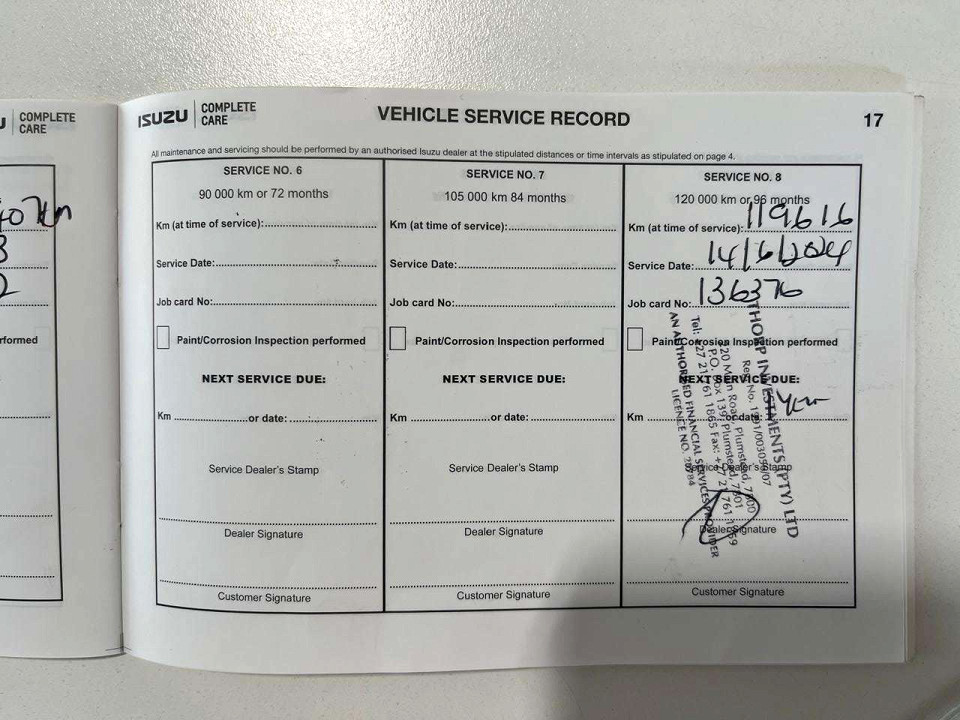 U COMPLETE CARE
407km
3
2
rformed
ISUZU COMPLETE CARE
VEHICLE SERVICE RECORD
17
All maintenance and servicing should be performed by an authorised Isuzu dealer at the stipulated distances or time intervals as stipulated on page 4.
SERVICE NO. 6
90 000 km or 72 months
Km (at time of service):
Service Date:
Job card No:
Paint/Corrosion Inspection performed
NEXT SERVICE DUE:
Km or date:
Service Dealer's Stamp
Dealer Signature
Customer Signature
SERVICE NO. 7
105 000 km 84 months
Km (at time of service):
Service Date:
Job card No:
Paint/Corrosion Inspection performed
NEXT SERVICE DUE:
Km or date:
Service Dealer's Stamp
Dealer Signature
Customer Signature
SERVICE NO. 8
120 000 km or 96 months
Km (at time of service): 119616
Service Date: 14/6/2024
Job card No: 136376
Paint/Corrosion Inspection performed
NEXT SERVICE DUE:
Km or date:
Service Dealer's Stamp
Dealer Signature
Customer Signature
THORP INVESTMENTS (PTY) LTD
Reg. No.
Main Road, Plumstead,
P.O. Box 139, Plumstead, 7801
Tel: 1865 Fax:
AN AUTHORISED FINANCIAL SERVICES PROVIDER
LICENCE NO.